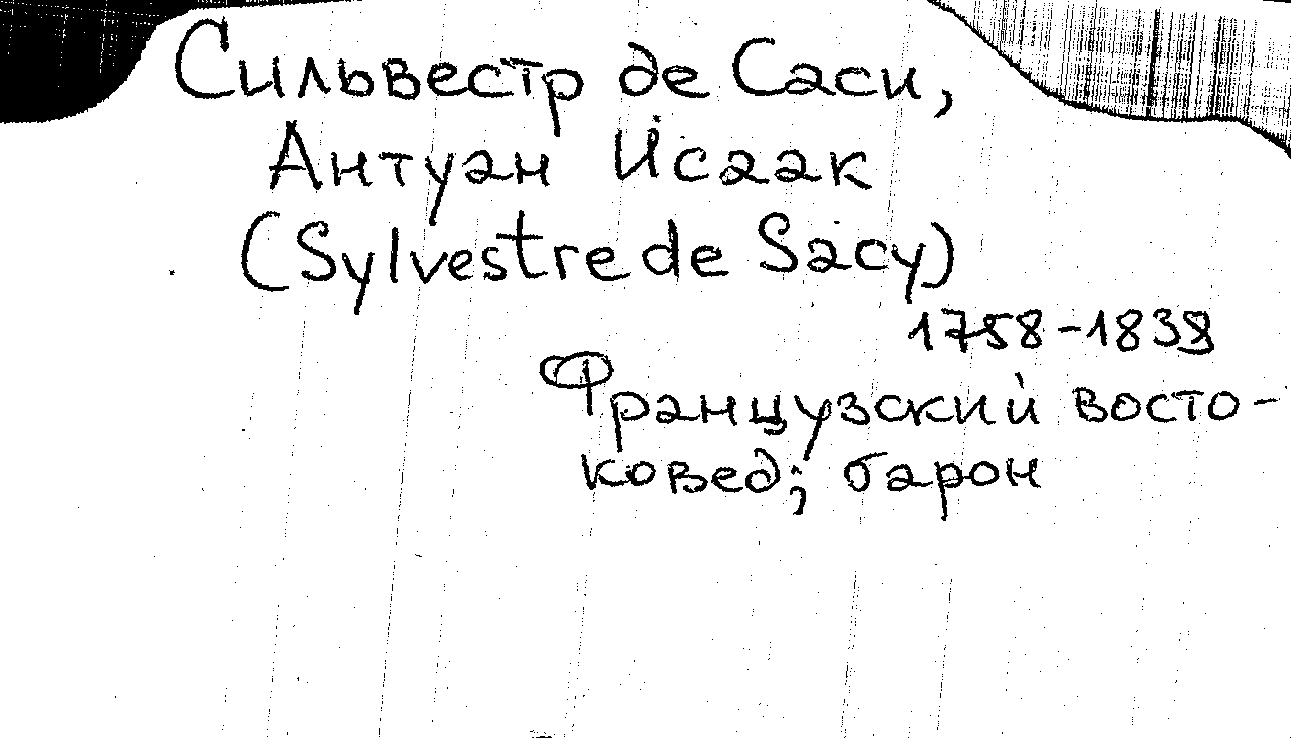 Сильвестр де Саси,
Антуан Исаак
(Sylvestre de Sacy)
1758-1838
Французский восто-
ковед; барон